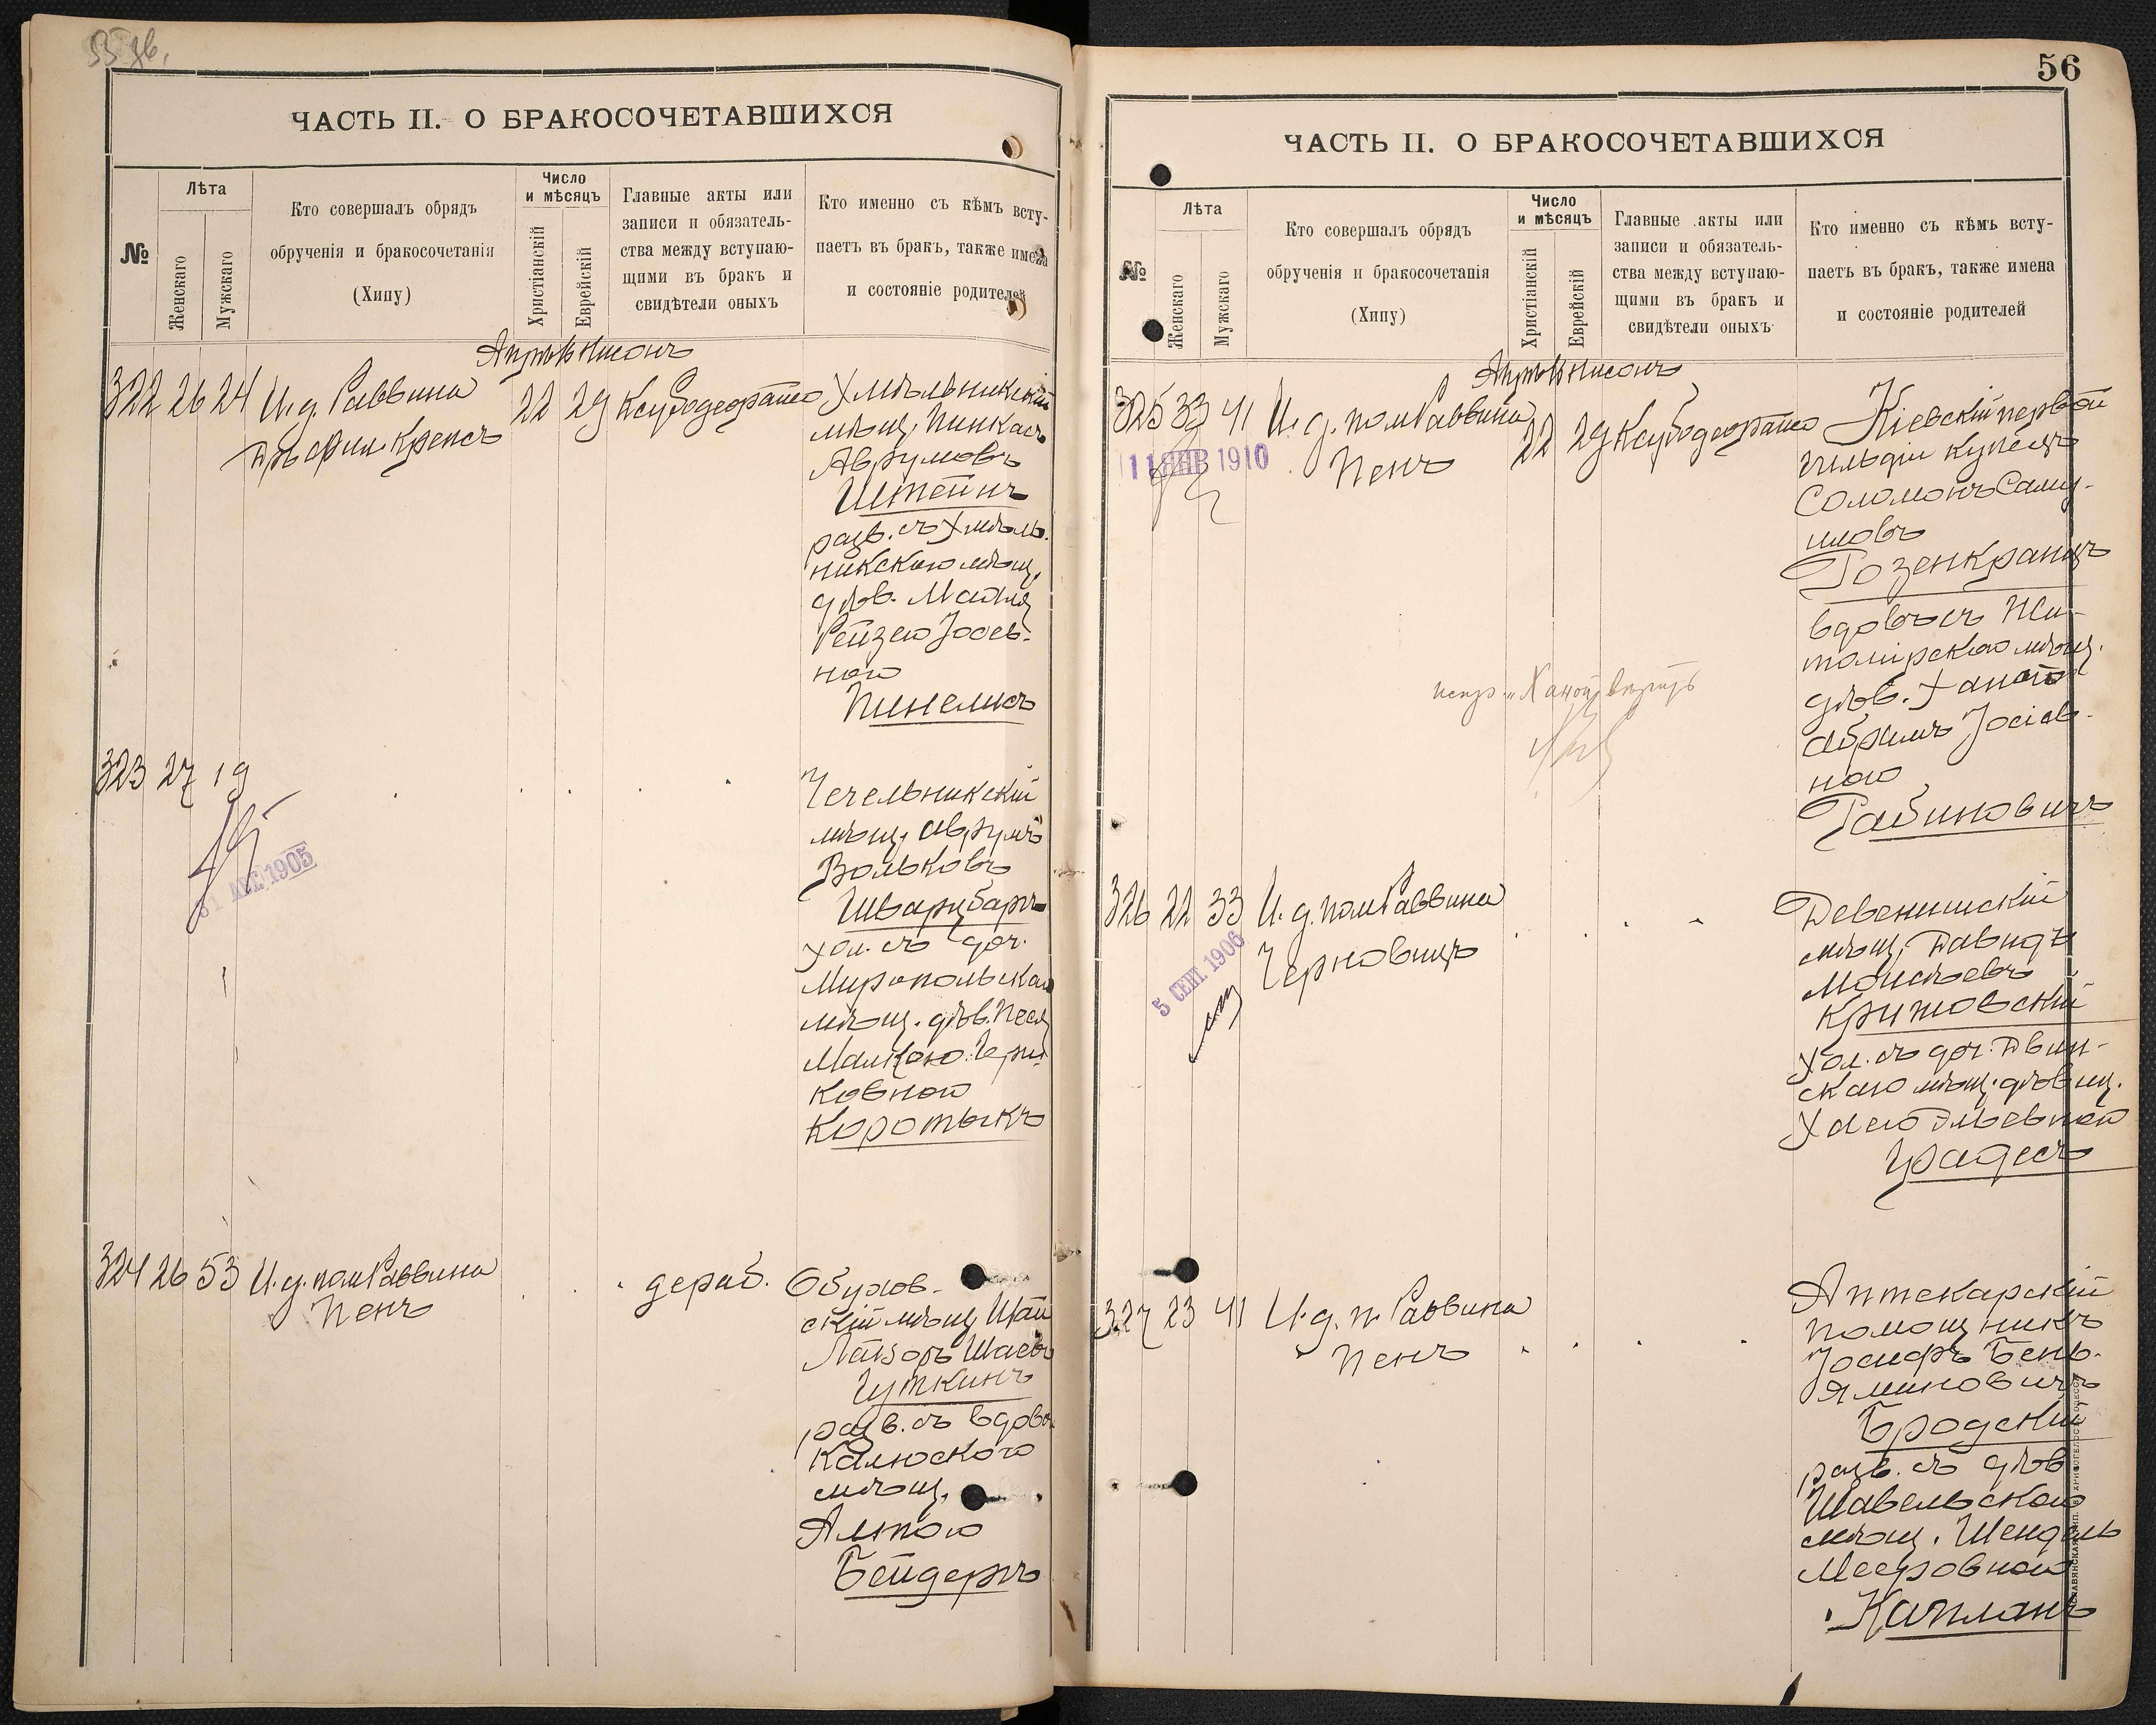 55 зв.
ЧАСТЬ II. О БРАКОСОЧЕТАВШИХСЯ
№
Лѣта
Женскаго
Мужскаго
Кто совершалъ обрядъ
обрученія и бракосочетанія
(Хипу)
Число
и мѣсяцъ
Христіанскій
Еврейскій
Главные акты или
записи и обязатель-
ства между вступаю-
щими въ бракъ и
свидѣтели оныхъ
Кто именно съ кѣмъ всту-
паетъ въ бракъ, также имена
и состояніе родителей
Апрѣль Нисонъ
322 26 24 И. д. Раввина
Дръ фил. Крепсъ
22 29
Хмѣльникскій
мѣщ. Пинкасъ
Аврумовъ
Штейнъ
разв. съ Хмѣль-
никскаго мѣщ.
дѣв. Матля
Рейзею Іосев-
ною
Пинелисъ
323 27 19
31 АВГ. 1905
Чечельникскій
мѣщ. Аврумъ
Вольковъ
Шварцбаргъ
хол. съ доч.
Миропольскаго
мѣщ. дѣв. Песя
Малкою
Ковной
Коротыкъ
324 26 53 И. д. пом. Раввина
Пенъ
дераб.
Обухов-
скій мѣщ.
Лейзоръ
Гуткинъ
разв. съ вдово
Калюского
мѣщ.
Бейдеръ
56
ЧАСТЬ II. О БРАКОСОЧЕТАВШИХСЯ
№
Лѣта
Женскаго
Мужскаго
Кто совершалъ обрядъ
обрученія и бракосочетанія
(Хипу)
Число
и мѣсяцъ
Христіанскій
Еврейскій
Главные акты или
записи и обязатель-
ства между вступаю-
щими въ бракъ и
свидѣтели оныхъ
Кто именно съ кѣмъ всту-
паетъ въ бракъ, также имена
и состояніе родителей
Апрѣль Нисонъ
325 33 41 И. д. пом. Раввина
Пенъ
22 29
11 ЯНВ 1910
Кіевскій первой
гильдіи купецъ
Соломонъ Саму-
иловъ
Розенкранцъ
вдовъ съ Жи-
томірскаго мѣщ.
дѣв. Ханою
Абрамъ Іосіев-
ною
Рабиновичъ
326 22 33 И. д. пом. Раввина
Черновицъ
5 СЕНТ. 1906
Девенишскій
мѣщ. Давидъ
Моисѣевъ
Крижовскій
хол. съ доч. Двин-
скаго мѣщ. дѣвиц.
Хаею Эльевной
Градесъ
327 23 41 И. д. п. Раввина
Пенъ
Аптекарскій
помощникъ
Іосифъ Бень-
яминовичъ
Бродскій
разв. съ дѣв
Шавельскаго
мѣщ. Шендель
Мееровною
Капланъ